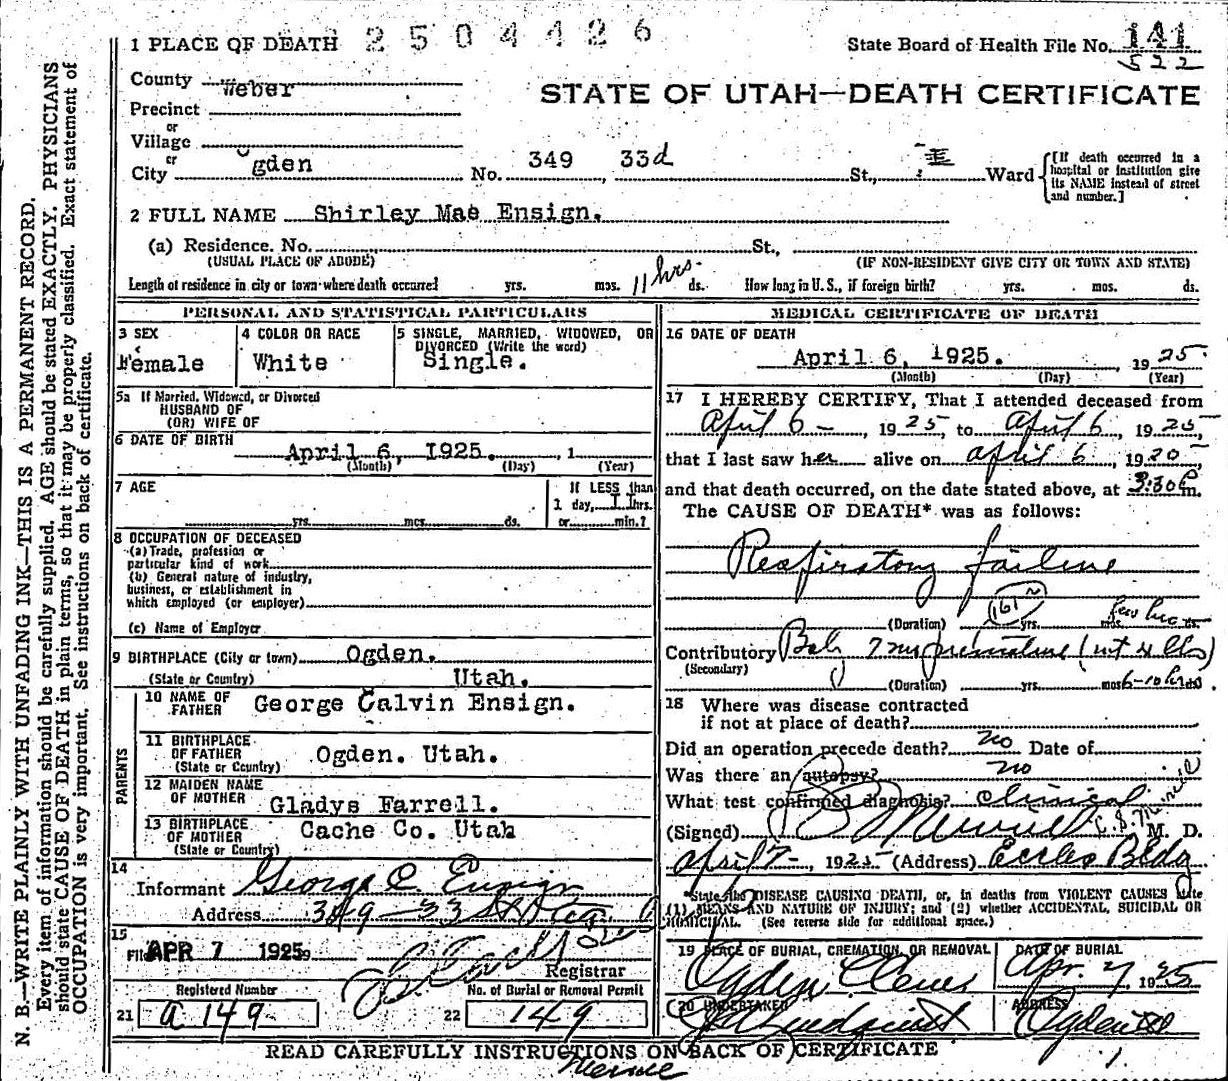 N. B.—WRITE PLAINLY WITH UNFADING INK—THIS IS A PERMANENT RECORD.
Every item of information should be carefully supplied. AGE should be stated EXACTLY. PHYSICIANS
should state CAUSE OF DEATH in plain terms, so that it may be properly classified. Exact statement of
OCCUPATION is very important. See instructions on back of certificate.
1 PLACE OF DEATH 2504426
State Board of Health File No. 141
522
County Weber
STATE OF UTAH—DEATH CERTIFICATE
Precinct
or
Village
or
City Ogden No. 349 33d St., Ward
[If death occurred in a
hospital or institution give
its NAME instead of street
and number.]
2 FULL NAME Shirley Mae Ensign.
(a) Residence. No. St.,
(USUAL PLACE OF ABODE) (IF NON-RESIDENT GIVE CITY OR TOWN AND STATE)
Length of residence in city or town where death occurred yrs. mos. 11 hrs. ds. How long in U. S., if foreign birth? yrs. mos. ds.
PERSONAL AND STATISTICAL PARTICULARS
3 SEX
Female
4 COLOR OR RACE
White
5 SINGLE, MARRIED, WIDOWED, OR
DIVORCED (Write the word)
Single.
5a If Married, Widowed, or Divorced
HUSBAND OF
(OR) WIFE OF
6 DATE OF BIRTH
April 6, 1925. , 1
(Month) (Day) (Year)
7 AGE
yrs. mos. ds.
If LESS than
1 day, 11 hrs.
or min.?
8 OCCUPATION OF DECEASED
(a) Trade, profession or
particular kind of work
(b) General nature of industry,
business, or establishment in
which employed (or employer)
(c) Name of Employer
9 BIRTHPLACE (City or town) Ogden.
(State or Country) Utah.
PARENTS
10 NAME OF
FATHER George Calvin Ensign.
11 BIRTHPLACE
OF FATHER Ogden. Utah.
(State or Country)
12 MAIDEN NAME
OF MOTHER Gladys Farrell.
13 BIRTHPLACE
OF MOTHER Cache Co. Utah
(State or Country)
14
Informant George C Ensign
Address 349-33 St
15
Filed APR 7 1925
Registrar
Registered Number
21 a 149
No. of Burial or Removal Permit
22 149
MEDICAL CERTIFICATE OF DEATH
16 DATE OF DEATH
April 6, 1925. 1925
(Month) (Day) (Year)
17 I HEREBY CERTIFY, That I attended deceased from
April 6 -, 1925, to April 6, 1925,
that I last saw her alive on April 6, 1925,
and that death occurred, on the date stated above, at 3:30 P m.
The CAUSE OF DEATH* was as follows:
Respiratory failure
161
(Duration) yrs. mos. few hrs ds.
Contributory Baby 7 mo premature (wt 4 lbs)
(Secondary)
(Duration) yrs. mos. 6-10 hrs ds.
18 Where was disease contracted
if not at place of death?
Did an operation precede death? no Date of
Was there an autopsy? no
What test confirmed diagnosis? Clinical
(Signed) Merrill M. D.
April 7-, 1925 (Address) Eccles Bldg
*State the DISEASE CAUSING DEATH, or, in deaths from VIOLENT CAUSES state
(1) MEANS AND NATURE OF INJURY; and (2) whether ACCIDENTAL, SUICIDAL OR
HOMICIDAL. (See reverse side for additional space.)
19 PLACE OF BURIAL, CREMATION, OR REMOVAL
Ogden
DATE OF BURIAL
Apr. 7, 1925
20 UNDERTAKER
ADDRESS
Ogden
READ CAREFULLY INSTRUCTIONS ON BACK OF CERTIFICATE